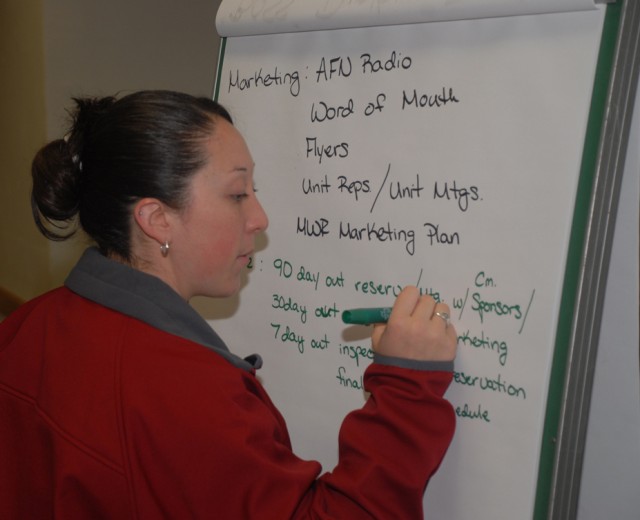 Marketing: AFN Radio
Word of Mouth
Flyers
Unit Reps/Unit Mtgs.
MWR Marketing Plan
: 90 day out reserve/Mtg w/ Cm. Sponsors/
30day out
7day out
final